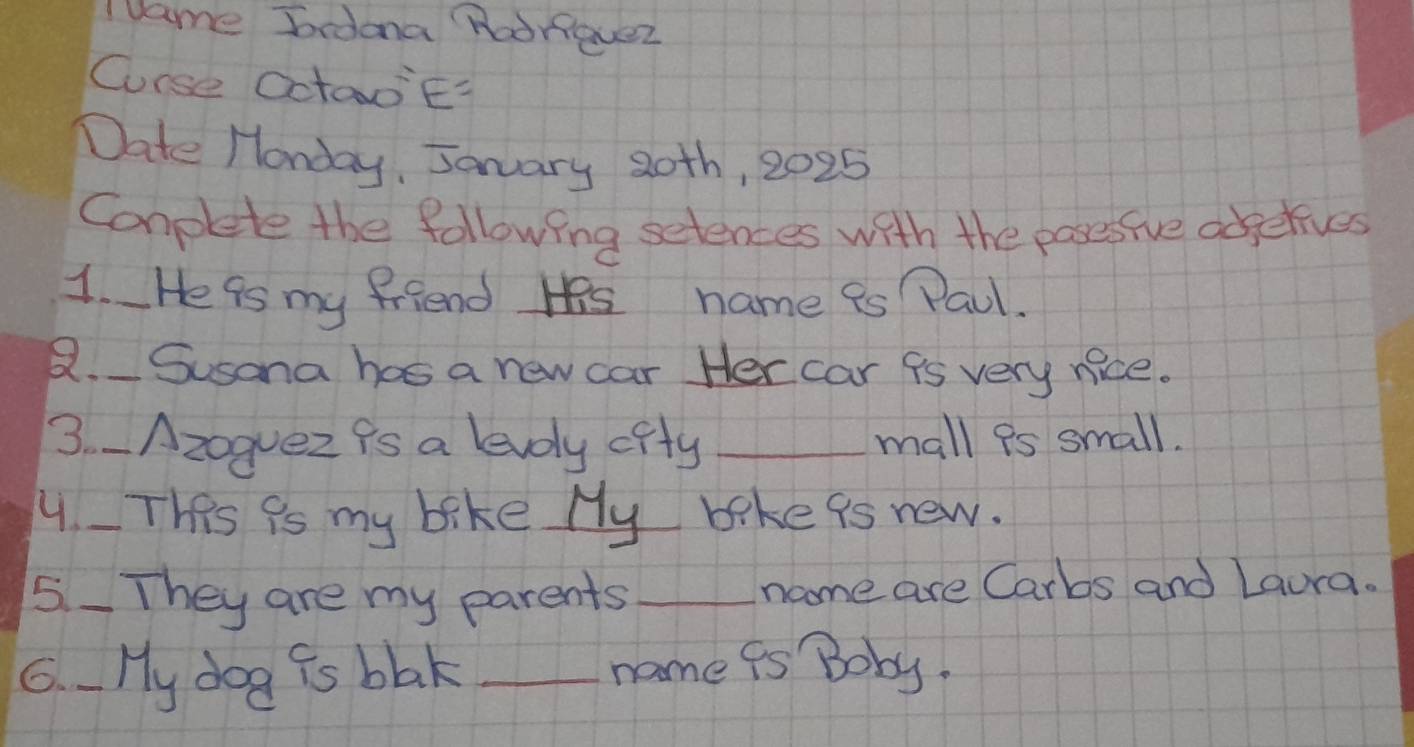 Name Jordana Rodriguez
Curse Octavo "E"
Date Monday, January 20th, 2025
Conplete the following setences with the posesive adjetives
1._ He is my friend His name is Paul.
2._ Susana has a new car Her car is very nice.
3._ Azoguez is a levoly city ____ mall is small.
4._ This is my bike My bike is new.
5._ They are my parents ____ name are Carlos and Laura.
6._ My dog is blak ____ name is Boby.